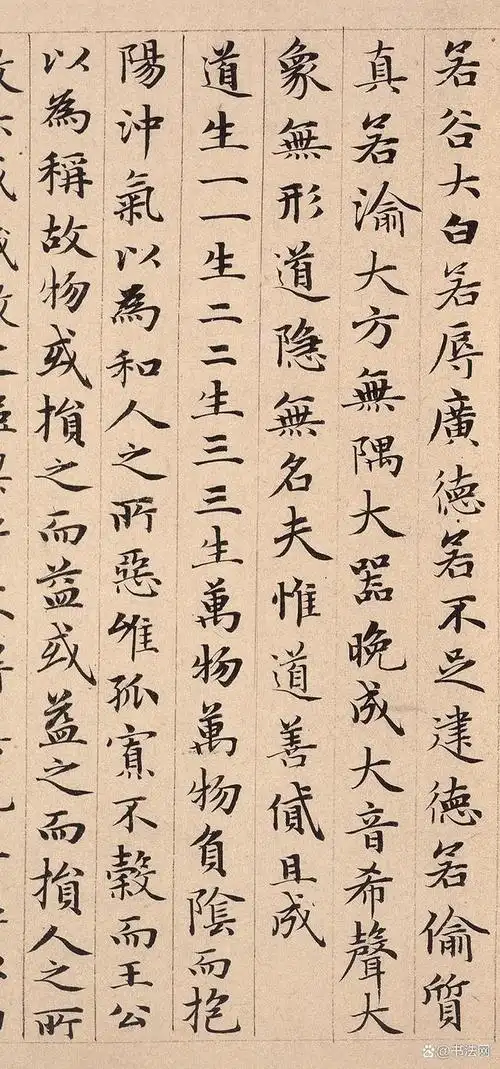 若谷大白若辱廣德若不足建德若偷質
真若渝大方無隅大器晚成大音希聲大
象無形道隱無名夫惟道善貸且成
道生一一生二二生三三生萬物萬物負陰而抱
陽沖氣以為和人之所惡唯孤寡不穀而王公
以為稱故物或損之而益或益之而損人之所
@书法网